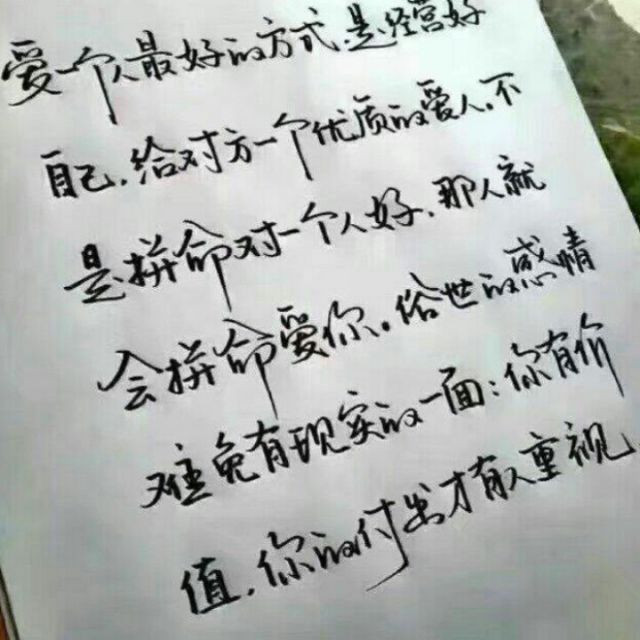 爱一个人最好的方式是经营好
自己.给对方一个优质的爱人.不
是拼命对一个人好.那人就
会拼命爱你。俗世的感情
难免有现实的一面:你有价
值.你的付出才有人重视